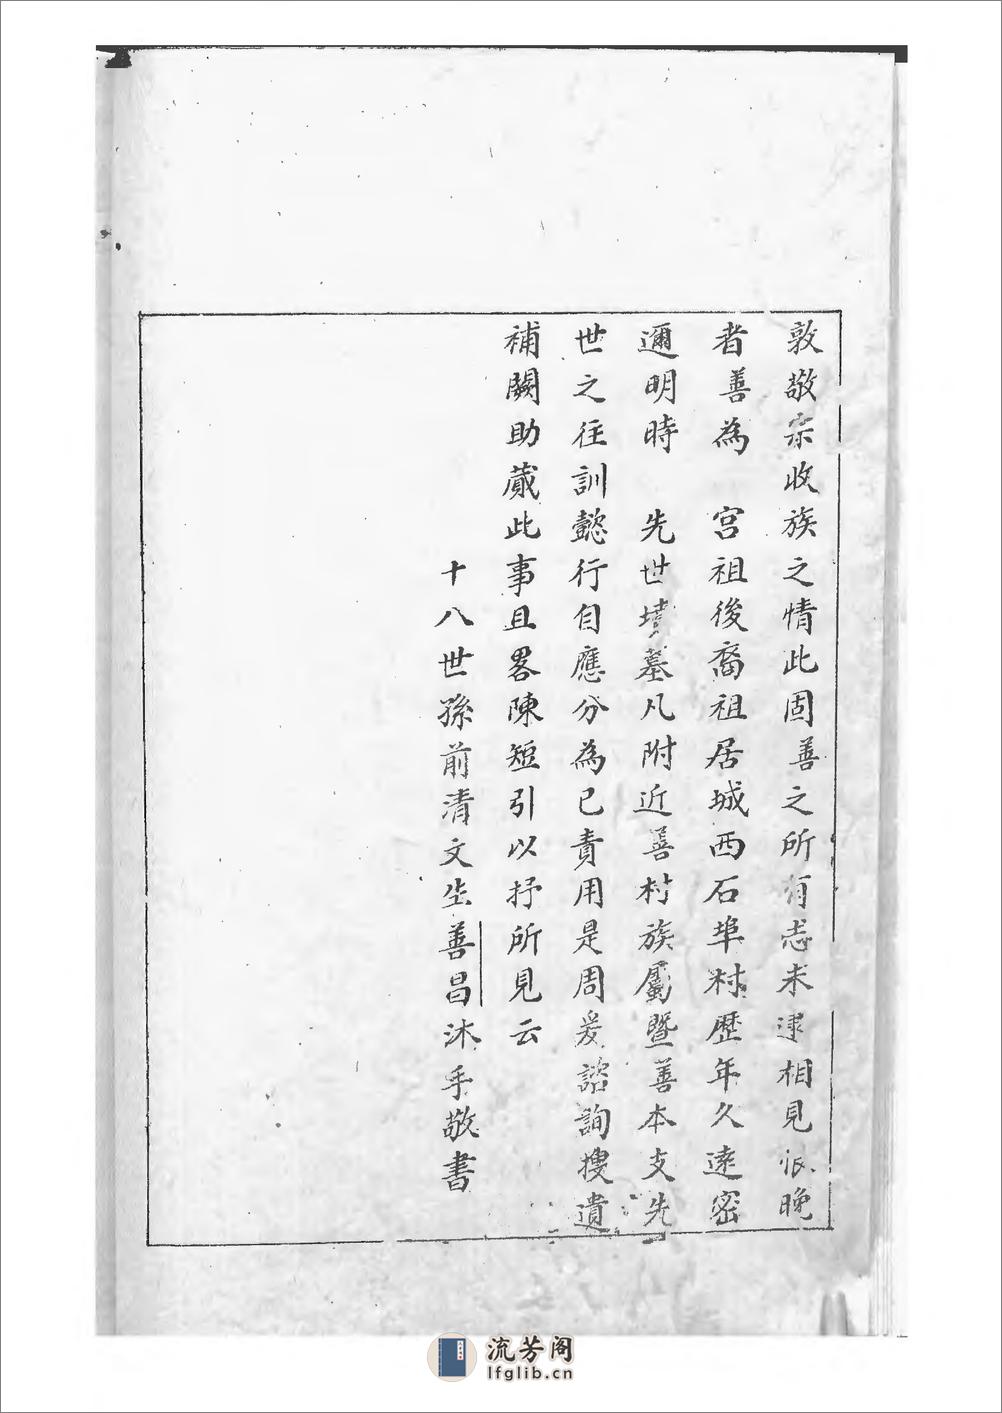 敦敬宗收族之情此固善之所有志未逮相見恨晚
者善為　宮祖後裔祖居城西石埠村歷年久遠密
邇明時　先世墳墓凡附近善村族屬暨善本支先
世之往訓懿行自應分為已責用是周爰諮詢搜遺
補闕助蕆此事且畧陳短引以抒所見云
十八世孫前清文生善昌沐手敬書
流芳阁
lfglib.cn